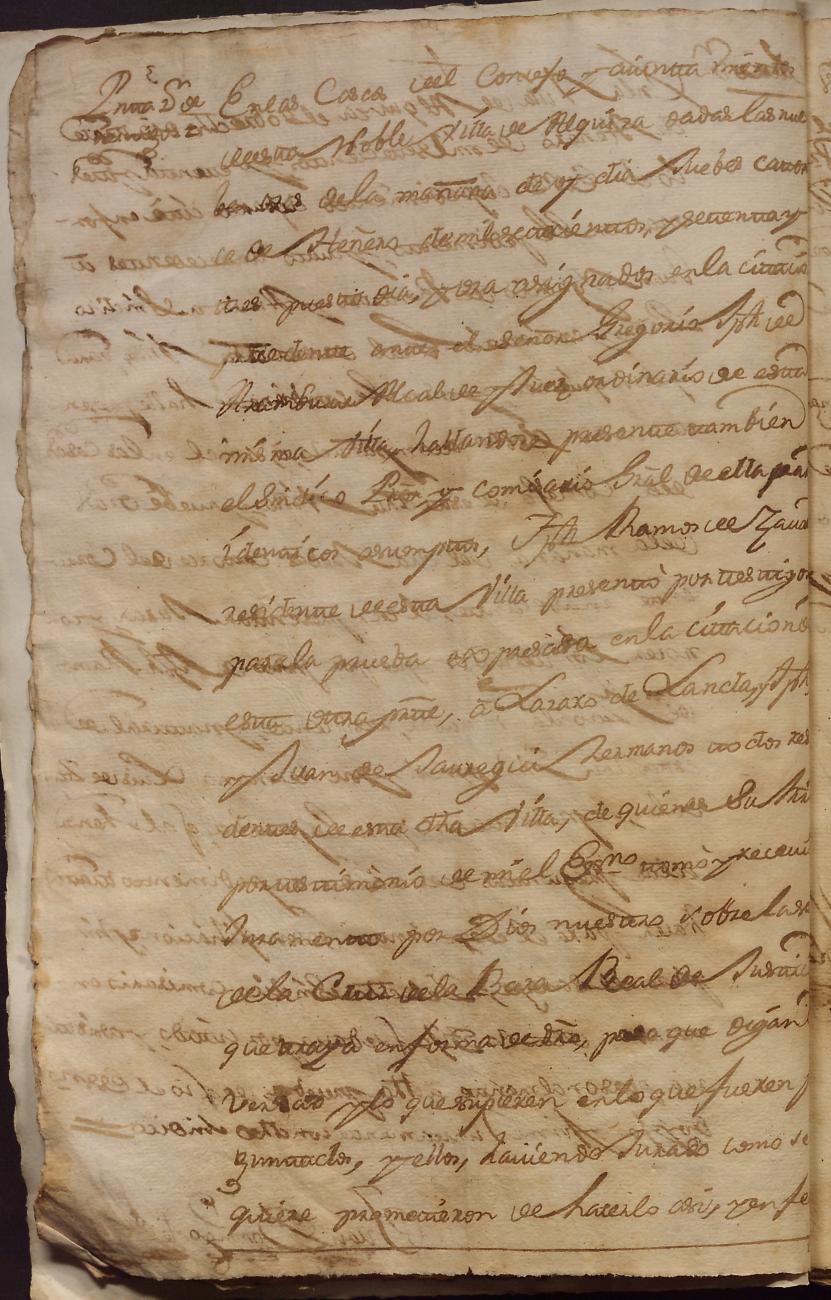 En las Casas del Concejo y aiunta miento
de esta Noble Villa de Alquiza dadas las nue
be oras de la mañana de oy dia Juebes cator
ce de Henero de mil setecientos, y setenta y
tres puesto, dia, y ora asignados en la citacion
precedente ante el señor Gregorio Jph de
Alcalde y Juez ordinario de esta
misma Villa, hallandose presente tambien
el Sindico Pror y comisario Gral de ella para
identicos asumptos, Jph Ramos de
residente de esta Villa presentó por testigos
para la prueba expresada en la citacion de
esta otra pte, a Lazaro de Lancta, Jph,
y Juan de Jauregui Hermanos todos resi
dentes de esta dha Villa, de quienes Su Mrd
por testimonio de mi el Essno tomó y recevió
Juramento por Dios nuestro sobre la
de la Cruz de la Bara Real de Justicia
que traya en forma de dro, para que digan
verdad y lo que supieren en lo que fueren
guntados, y ellos, haviendo Jurado como se
quiere prometieron de hacerlo asi, y en fe